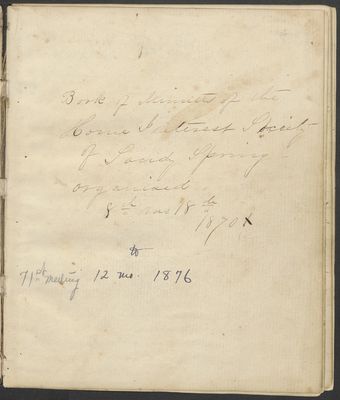 Book of Minutes of the
Home Interest Society
Of Sandy Spring
organized
8th mo 18th
1870
to
71st meeting 12 mo. 1876